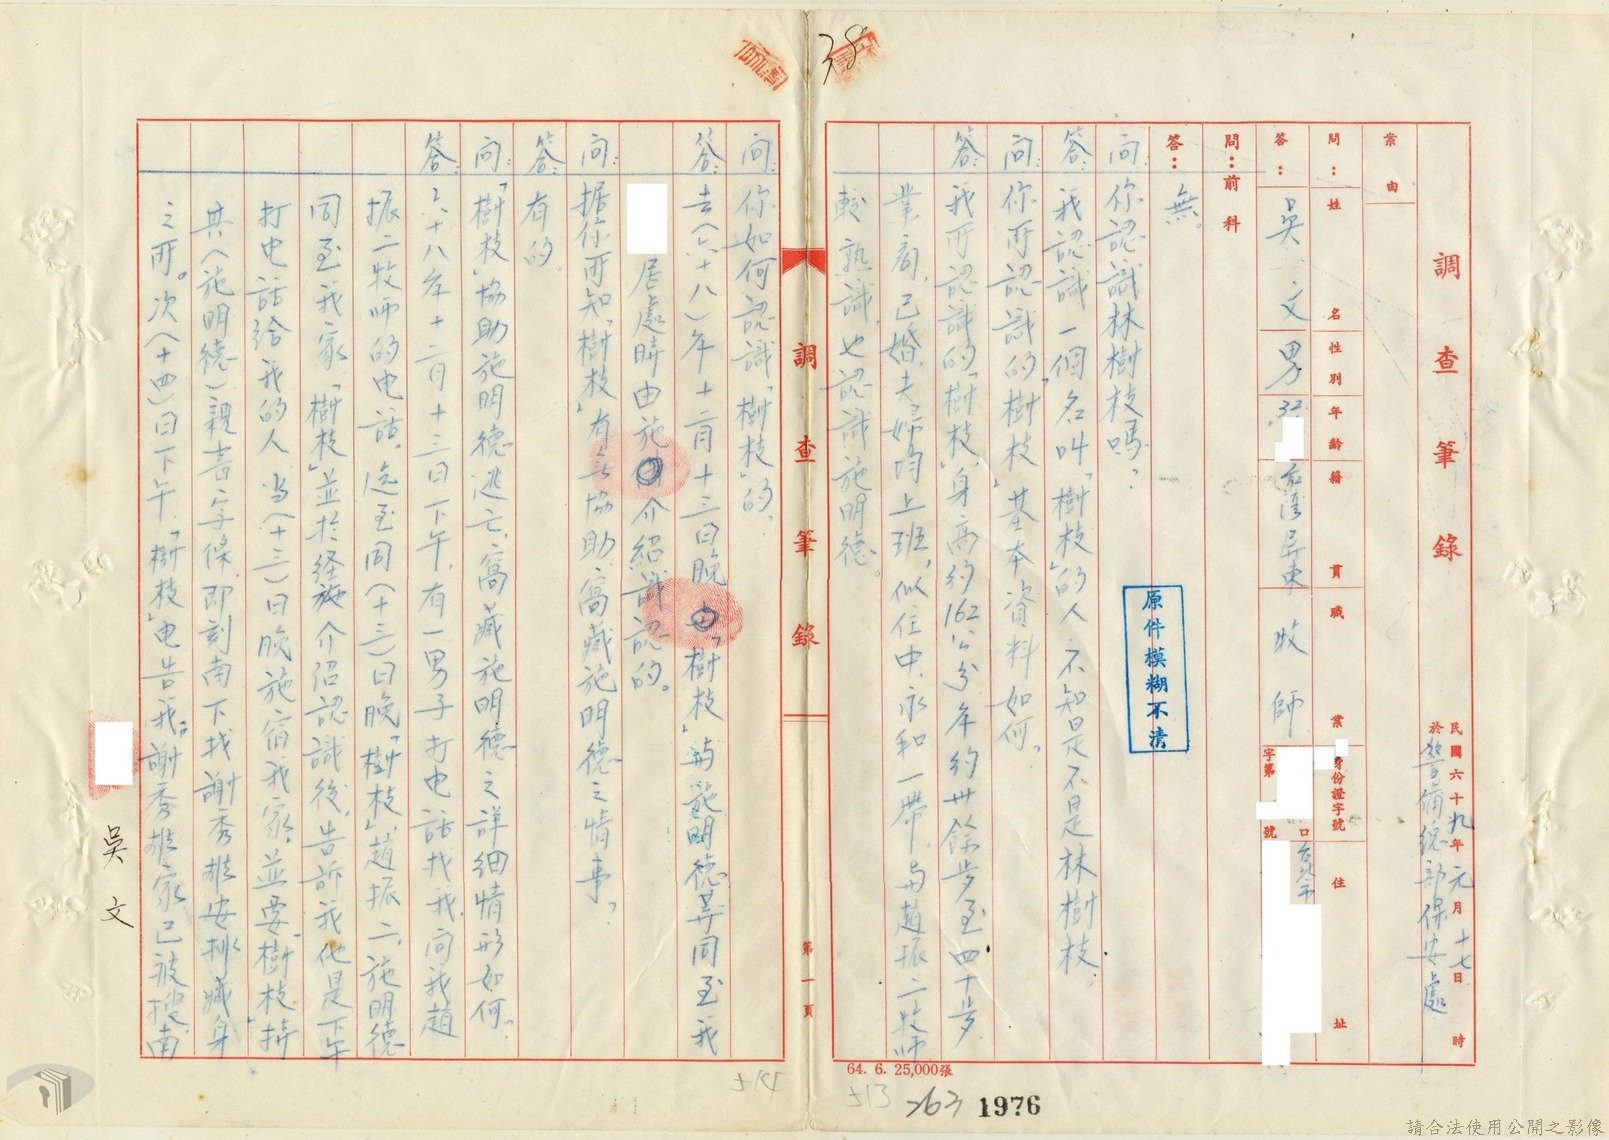 38
調查筆錄
民國六十九年元月十七日 時
於警備總部保安處
案由
問：姓名 性別 年齡 籍貫 職業 身份證字號 住址
答：吳文 男 32 台灣屏東 牧師 字第 號 台北市
問：前科
答：無。
問：你認識林樹枝嗎？
答：我認識一個名叫「樹枝」的人不知是不是林樹枝。
問：你所認識的「樹枝」基本資料如何？
答：我所認識的「樹枝」，身高約162公分年約卅餘歩至四十歩，
業商，已婚，夫婦均上班，似住中、永和一帶，与趙振二牧師
較熟識，也認識施明德。
原件模糊不清
64. 6. 25,000張
513
263
1976
調查筆錄
第一頁
問：你如何認識「樹枝」的？
答：去（六十八）年十二月十三日晚由「樹枝」與施明德等同至我
居處時由施介紹識認的。
問：据你所知「樹枝」有無協助、窩藏施明德之情事？
答：有的。
問：「樹枝」協助施明德逃亡、窩藏施明德之詳細情形如何？
答：六十八年十二月十三日下午，有一男子打电話找我，问我趙
振二牧师的电話。迄至同（十三）日晚「樹枝」、趙振二、施明德
同至我家，「樹枝」並於経施介绍認識後，告訴我他是下午
打电話給我的人，当（十三）日晚施宿我家，並要「樹枝」持
其（施明德）親書字條，即刻南下找謝秀雄安排藏身
之所。次（十四）日下午，「樹枝」电告我：謝秀雄家已被搜，南
吳文
514
請合法使用公開之影像